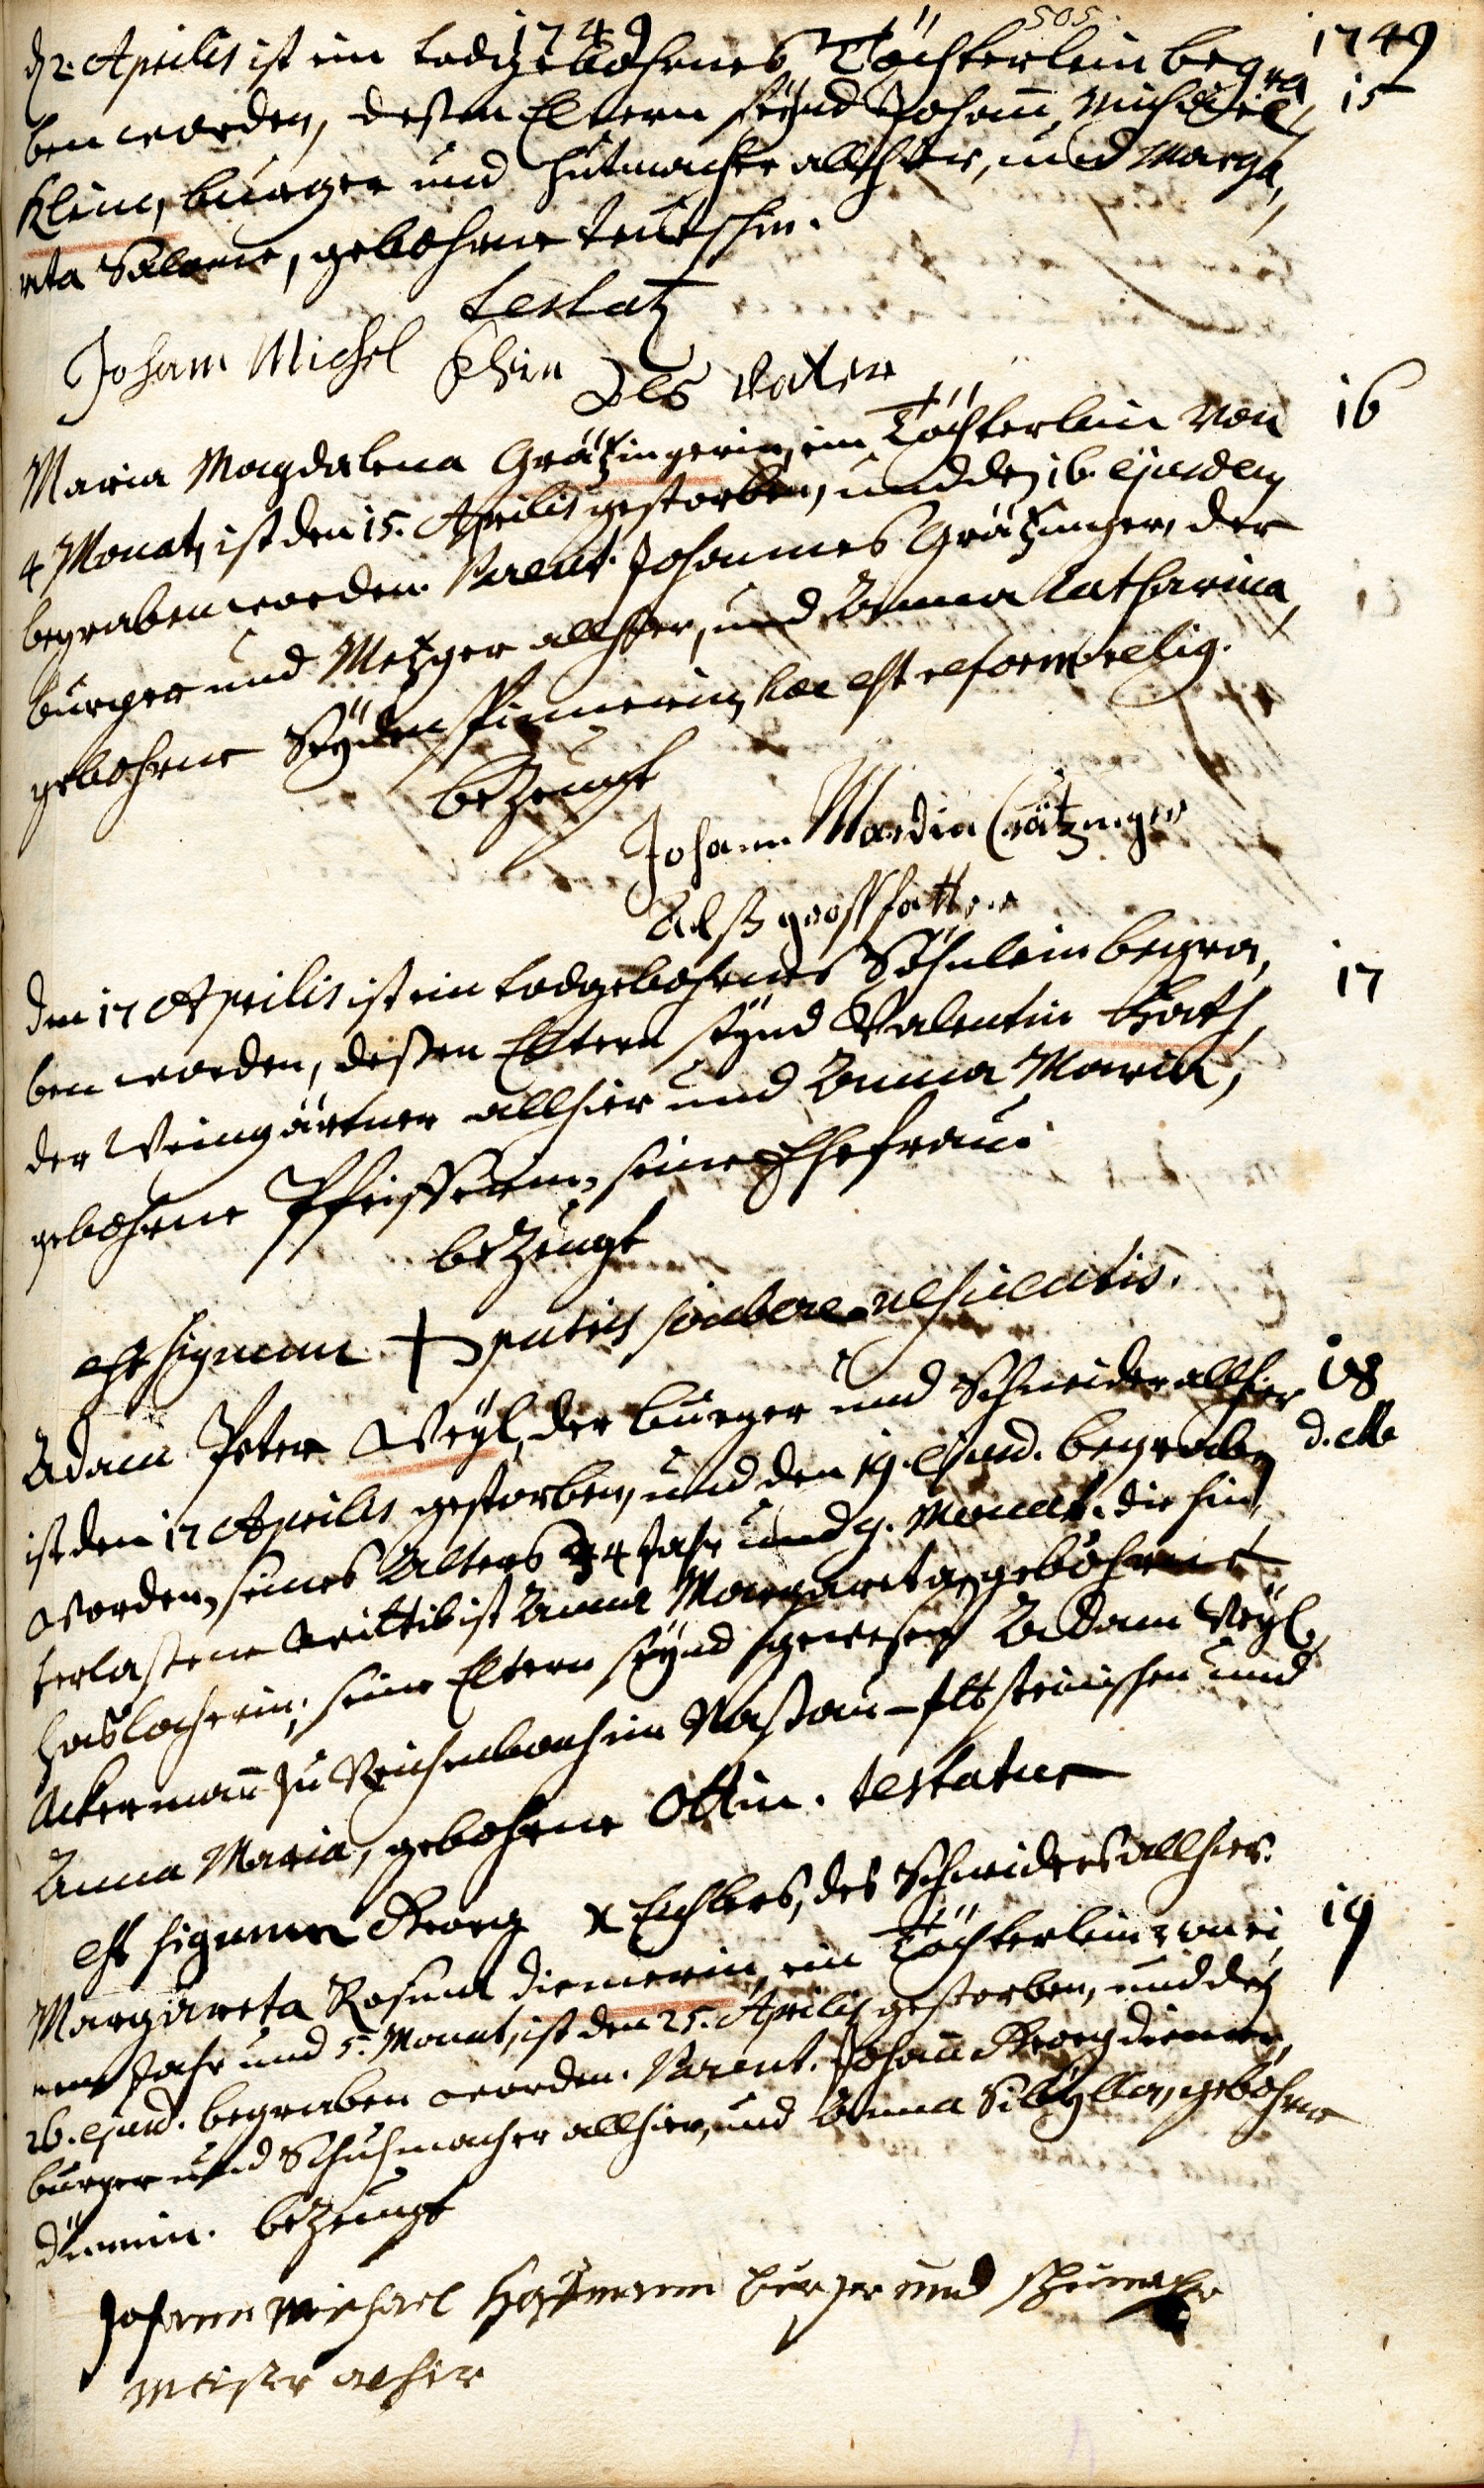 505.
1749
1749
d. 2. Aprilis ist ein todtgebohrnes Töchterlein begra
ben worden, deßen Eltern seynd Johann Michael 15
Klein, burger und Hutmacher allhier, und Marga,
reta Salome, gebohrne Teutschin.
testat
Johann Michel Klein
Als Vatter
Maria Magdalena Grätzingerin, ein Töchterlein von 16
4 Monat, ist den 15. Aprilis gestorben, und den 16. ejusdem
begraben worden. Parent. Johannes Grätzinger, der
burger und Metzger allhier, und Anna Catharina,
gebohrne Seydenspinnerin, haec est reform. relig.
bezeugt
Johann Mardin Crätzinger
Alß großfatter
Den 17 Aprilis ist ein todgebohrnes Söhnlein begra, 17
ben worden, deßen Eltern seynd Valentin
der Weingärtner allhier und Anna Maria,
gebohrne Pfeifferin, seine Ehefrau.
bezeugt
est signum + patris scribere nescientis.
Adam Peter Weyl, der burger und Schneider allhier 18
ist den 17 Aprilis gestorben, und den 19. ejusd. begraben
worden, seines Alters 34 Jahr und 9. Monat. die hin,
terlaßene Wittib ist Anna Margareta, gebohrne
Haslocherin; seine Eltern seynd gewesen Adam Weyl,
Ackermann zu Reichenbach im Naßau-Itsteinischen und
Anna Maria, gebohrne Ottin. testatur
est signum Georg x Eichlers, des Schneiders allhier.
Margareta Rosina Diemerin, ein Töchterlein von ei, 19
nem Jahr und 5. Monat, ist den 25. Aprilis gestorben, und den
26. ejusd. begraben worden. Parent. Johann Georg Diemer,
burger und Schuhmacher allhier, und Anna Sibylla, gebohrne
bezeugt
Johann Michael Hoffmann burger und schumacher
Meister alhier